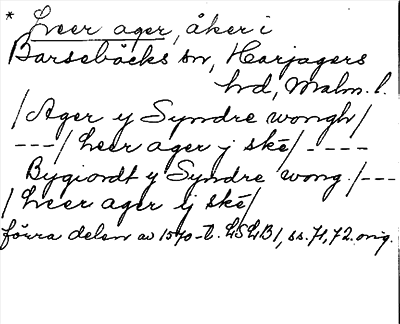 * Lveer ager, åker i
Barsebäcks sn, Harjagers
hd, Malm. l.
/Ager y Syndre wongh/
---/ hver ager j skė/ - ----
Bygiordt y Syndre wong./---
/ Lveer ager ij skė/
förra delen av 1570-t. LSLB1, ss. 71, 72. orig.